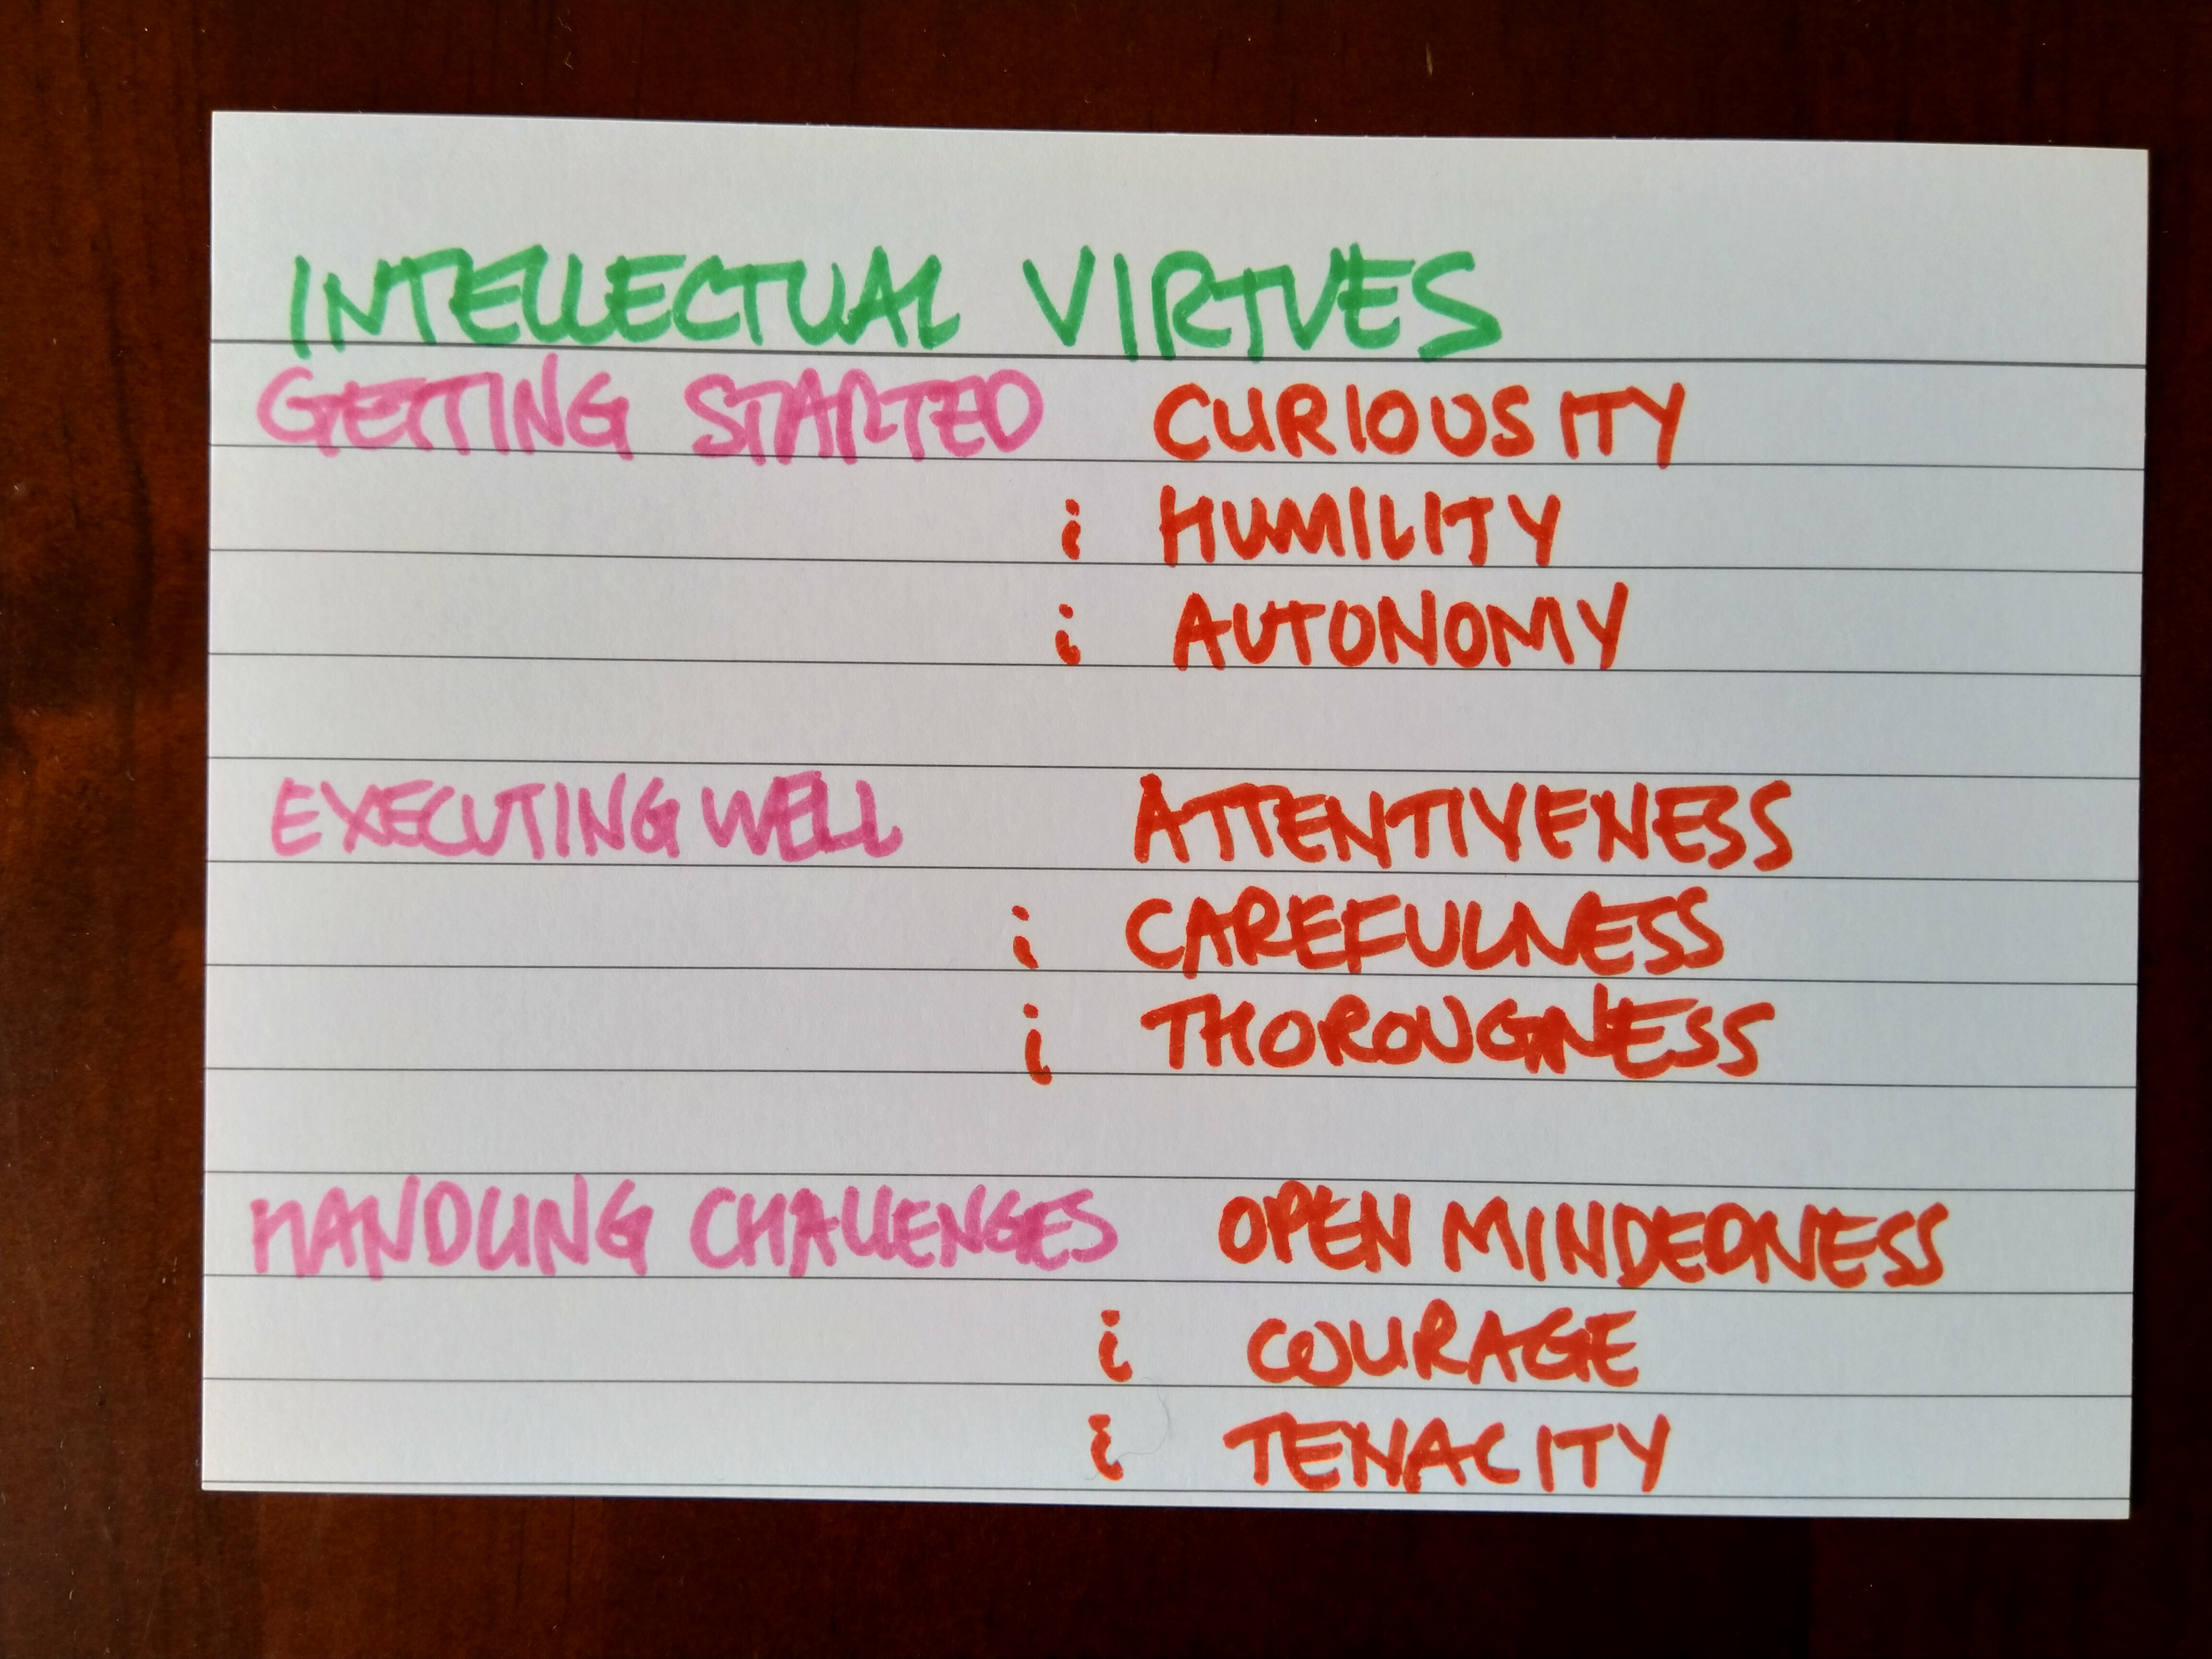 INTELLECTUAL VIRTUES
GETTING STARTED CURIOUSITY
; HUMILITY
; AUTONOMY
EXECUTING WELL ATTENTIVENESS
; CAREFULNESS
; THOROUGNESS
HANDLING CHALLENGES OPEN MINDEDNESS
; COURAGE
; TENACITY